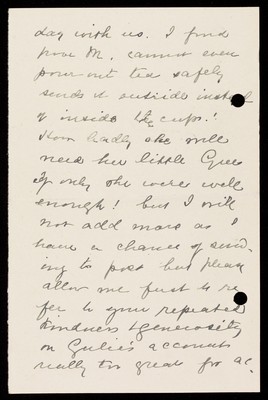 day with us. I find
poor M. cannot even
pour out tea safely
sends it outside instead
of inside the cups!
How badly she will
need her little Gulie
if only she were well
enough! but I will
not add more as I
have a chance of send-
ing to post but please
allow me just to re
fer to your repeated
kindness & generosity
on Gulie's account
really too great for ac-